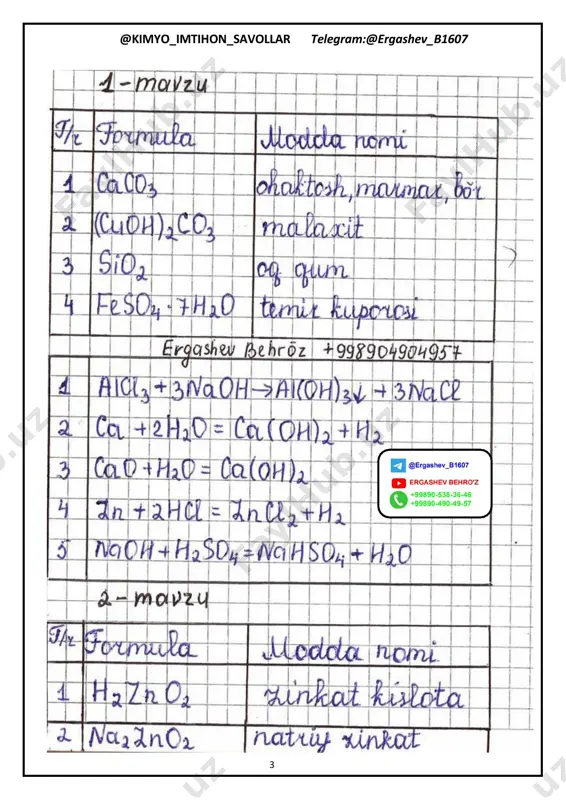 @KIMYO_IMTIHON_SAVOLLAR Telegram:@Ergashev_B1607
1-mavzu
T/r Formula Modda nomi
1 CaCO₃ ohaktosh, marmar, bõr
2 (CuOH)₂CO₃ malaxit
3 SiO₂ oq qum
4 FeSO₄·7H₂O temir kuporosi
Ergashev Behrõz +998904904957
1 AlCl₃+3NaOH→Al(OH)₃↓+3NaCl
2 Ca+2H₂O=Ca(OH)₂+H₂
3 CaO+H₂O=Ca(OH)₂
4 Zn+2HCl=ZnCl₂+H₂
5 NaOH+H₂SO₄=NaHSO₄+H₂O
@Ergashev_B1607
ERGASHEV BEHRO'Z
+99890-538-36-46
+99890-490-49-57
2-mavzu
T/r Formula Modda nomi
1 H₂ZnO₂ zinkat kislota
2 Na₂ZnO₂ natriy zinkat
3
FaylHub.uz